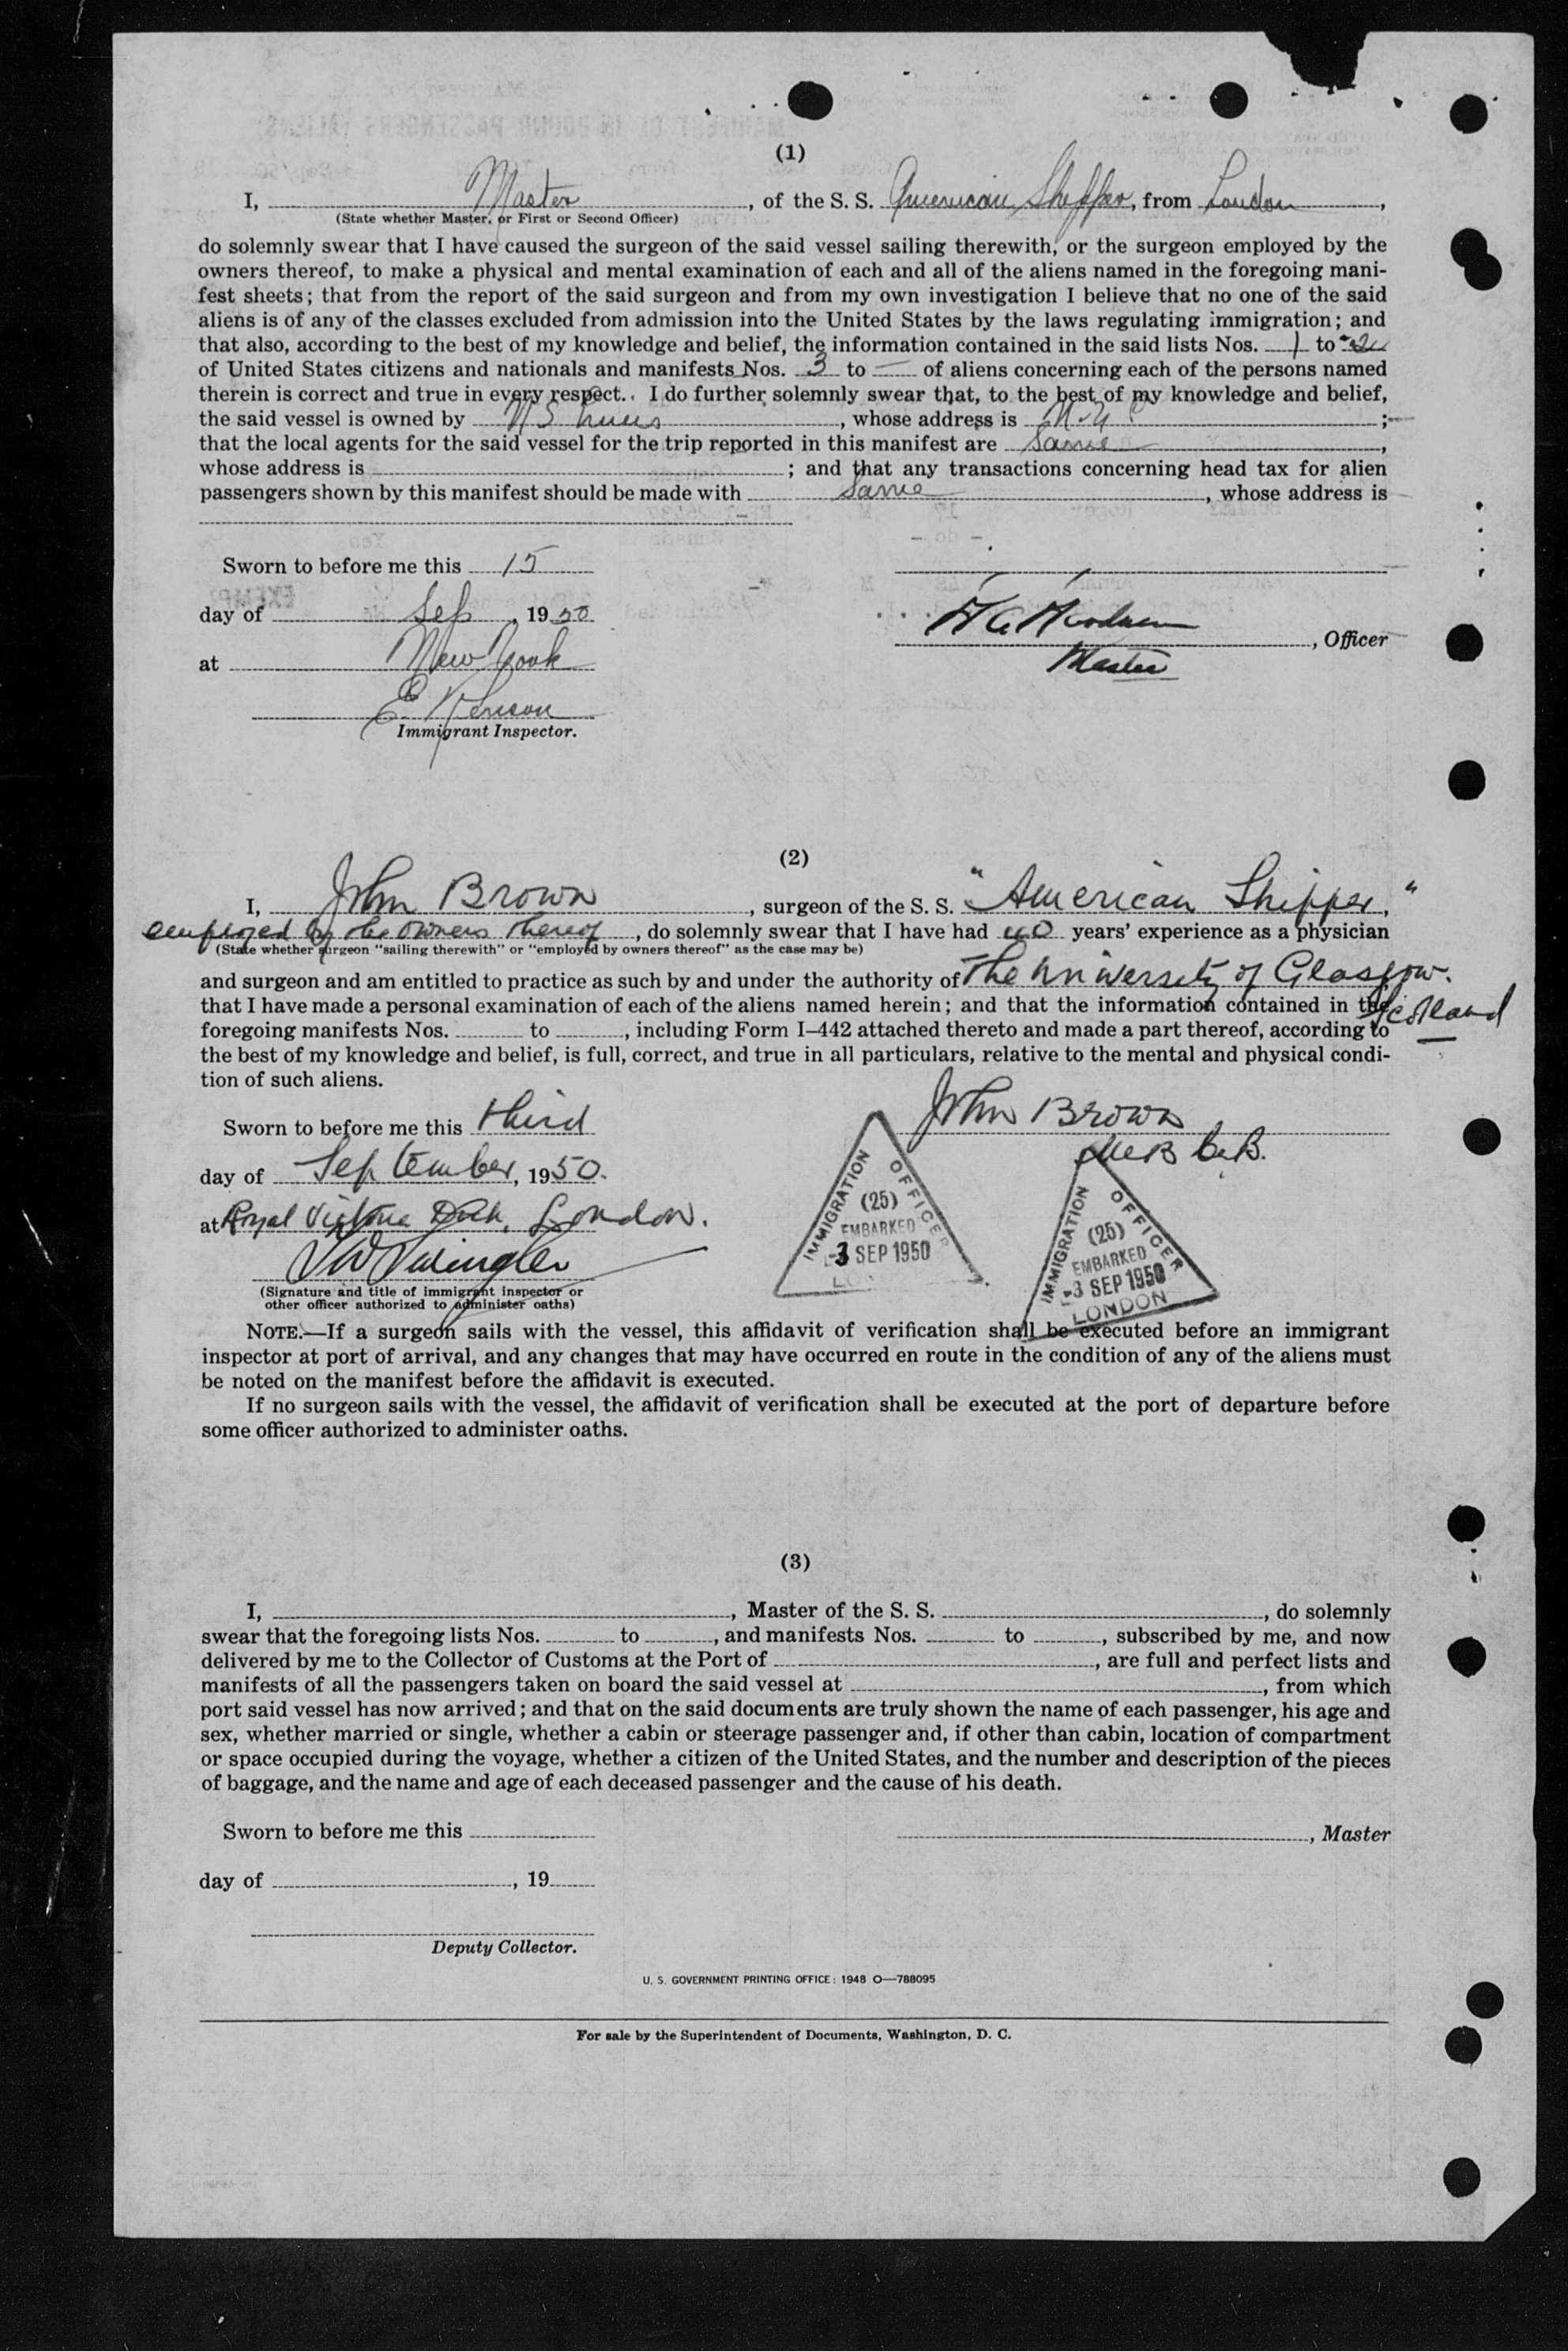 (1)
I, Master, of the S. S. American Shipper, from London,
(State whether Master, or First or Second Officer)
do solemnly swear that I have caused the surgeon of the said vessel sailing therewith, or the surgeon employed by the
owners thereof, to make a physical and mental examination of each and all of the aliens named in the foregoing mani-
fest sheets; that from the report of the said surgeon and from my own investigation I believe that no one of the said
aliens is of any of the classes excluded from admission into the United States by the laws regulating immigration; and
that also, according to the best of my knowledge and belief, the information contained in the said lists Nos. 1 to 2
of United States citizens and nationals and manifests Nos. 3 to — of aliens concerning each of the persons named
therein is correct and true in every respect. I do further solemnly swear that, to the best of my knowledge and belief,
the said vessel is owned by U S Lines, whose address is N.Y.C ;
that the local agents for the said vessel for the trip reported in this manifest are Same,
whose address is ; and that any transactions concerning head tax for alien
passengers shown by this manifest should be made with Same, whose address is
Sworn to before me this 15
day of Sep, 1950
, Officer
Master
at New York
E.
Immigrant Inspector.
(2)
I, John Brown, surgeon of the S. S. "American Shipper,"
employed by the owners thereof, do solemnly swear that I have had 40 years' experience as a physician
(State whether surgeon "sailing therewith" or "employed by owners thereof" as the case may be)
and surgeon and am entitled to practice as such by and under the authority of The University of Glasgow.
that I have made a personal examination of each of the aliens named herein; and that the information contained in the Scotland
foregoing manifests Nos. to , including Form I–442 attached thereto and made a part thereof, according to
the best of my knowledge and belief, is full, correct, and true in all particulars, relative to the mental and physical condi-
tion of such aliens.
Sworn to before me this third
John Brown
M.B Ch.B.
day of September, 1950.
at Royal Victoria Dock, London.
(Signature and title of immigrant inspector or
other officer authorized to administer oaths)
IMMIGRATION OFFICER
(25)
EMBARKED
-3 SEP 1950
LONDON
IMMIGRATION OFFICER
(25)
EMBARKED
-3 SEP 1950
LONDON
NOTE.—If a surgeon sails with the vessel, this affidavit of verification shall be executed before an immigrant
inspector at port of arrival, and any changes that may have occurred en route in the condition of any of the aliens must
be noted on the manifest before the affidavit is executed.
If no surgeon sails with the vessel, the affidavit of verification shall be executed at the port of departure before
some officer authorized to administer oaths.
(3)
I, , Master of the S. S. , do solemnly
swear that the foregoing lists Nos. to , and manifests Nos. to , subscribed by me, and now
delivered by me to the Collector of Customs at the Port of , are full and perfect lists and
manifests of all the passengers taken on board the said vessel at , from which
port said vessel has now arrived; and that on the said documents are truly shown the name of each passenger, his age and
sex, whether married or single, whether a cabin or steerage passenger and, if other than cabin, location of compartment
or space occupied during the voyage, whether a citizen of the United States, and the number and description of the pieces
of baggage, and the name and age of each deceased passenger and the cause of his death.
Sworn to before me this
, Master
day of , 19
Deputy Collector.
U. S. GOVERNMENT PRINTING OFFICE: 1948 O—788095
For sale by the Superintendent of Documents, Washington, D. C.